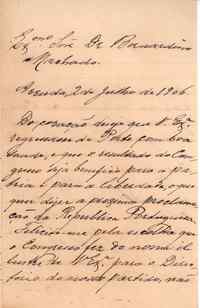 Exmo. Snr. Dr. Bernardino
Machado.
Arruda, 2 de Julho de 1906
Do coração desejo que V. Exa.
regressasse do Porto com boa
saude, e que o resultado do Con-
gresso seja benefico para a pa-
tria e para a liberdade, o que
quer dizer a proxima proclama-
ção da Republica Portuguesa.
Felicito-me pela escolha que
o Congresso fez do nome il-
lustre de V. Exa. para o Direc-
torio do nosso partido, não